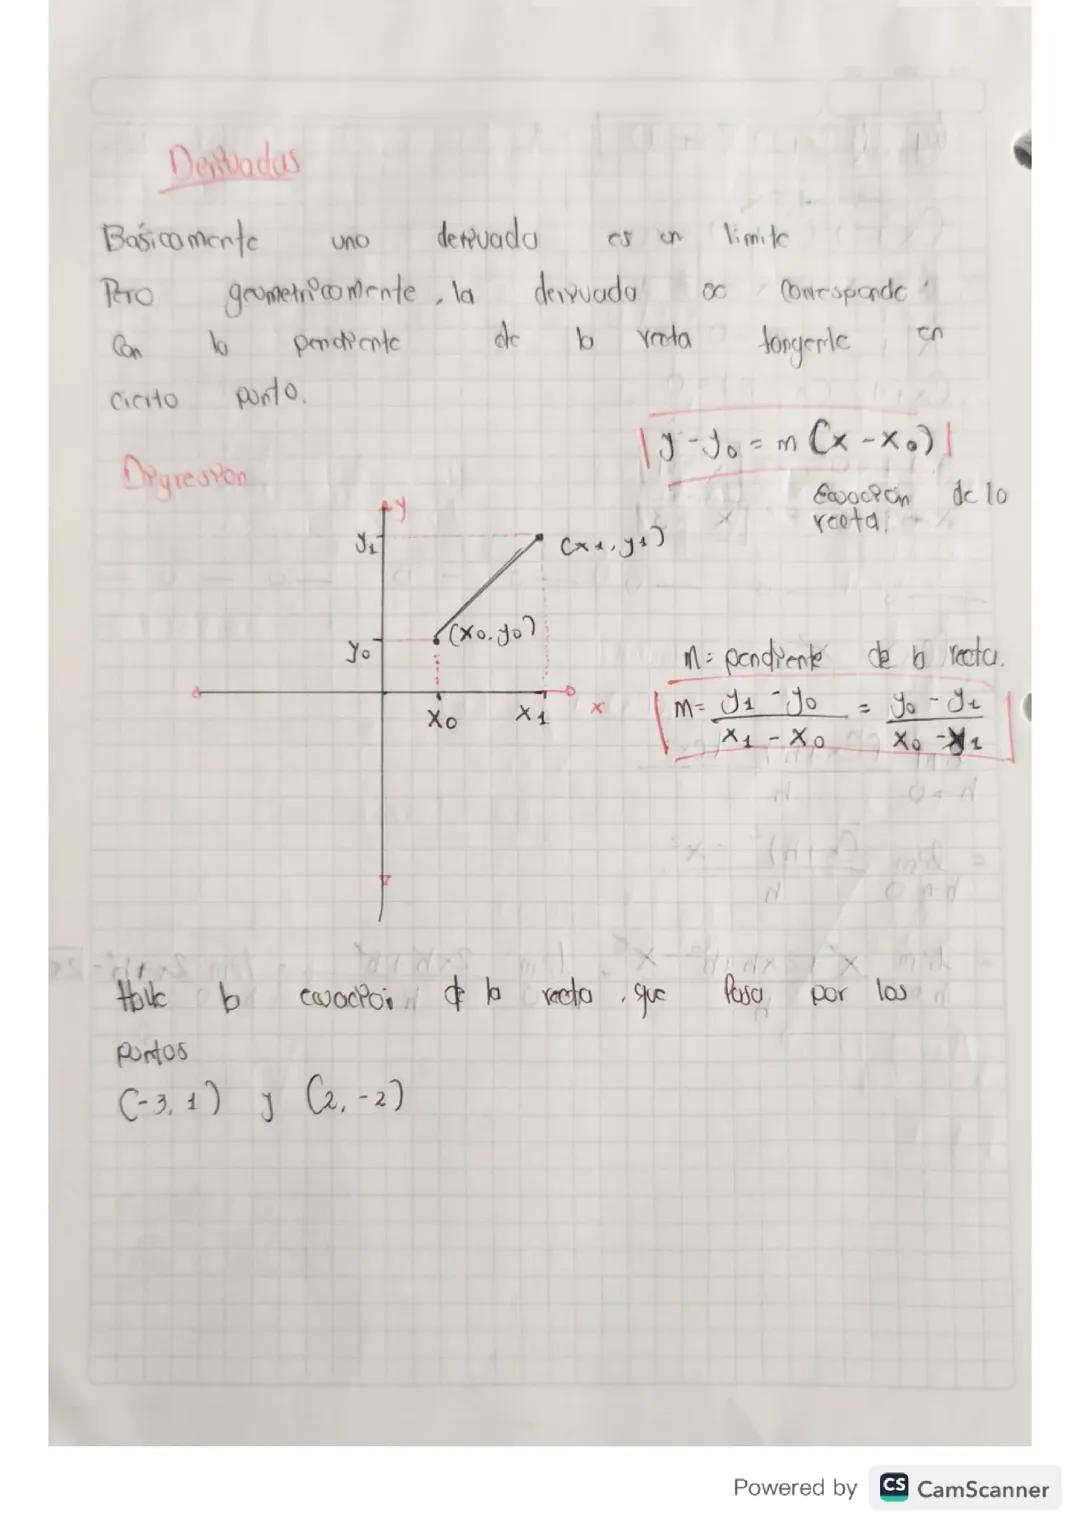 Derivadas
Básicamente una derivada es un límite
Pero geometricamente, la derivada se corresponde
Con la pendiente de la recta tangente en
cierto punto.
y - y₀ = m (x - x₀)
Digresion
Ecuación de la
recta.
y
y₁
(x₁, y₁)
y₀
(x₀, y₀)
x₀ x₁ x
m = pendiente de la recta.
m = y₁ - y₀ / x₁ - x₀ = y₀ - y₁ / x₀ - x₁
Halle la ecuación de la recta que pasa por los
puntos
(-3, 1) y (2, -2)
Powered by CS CamScanner